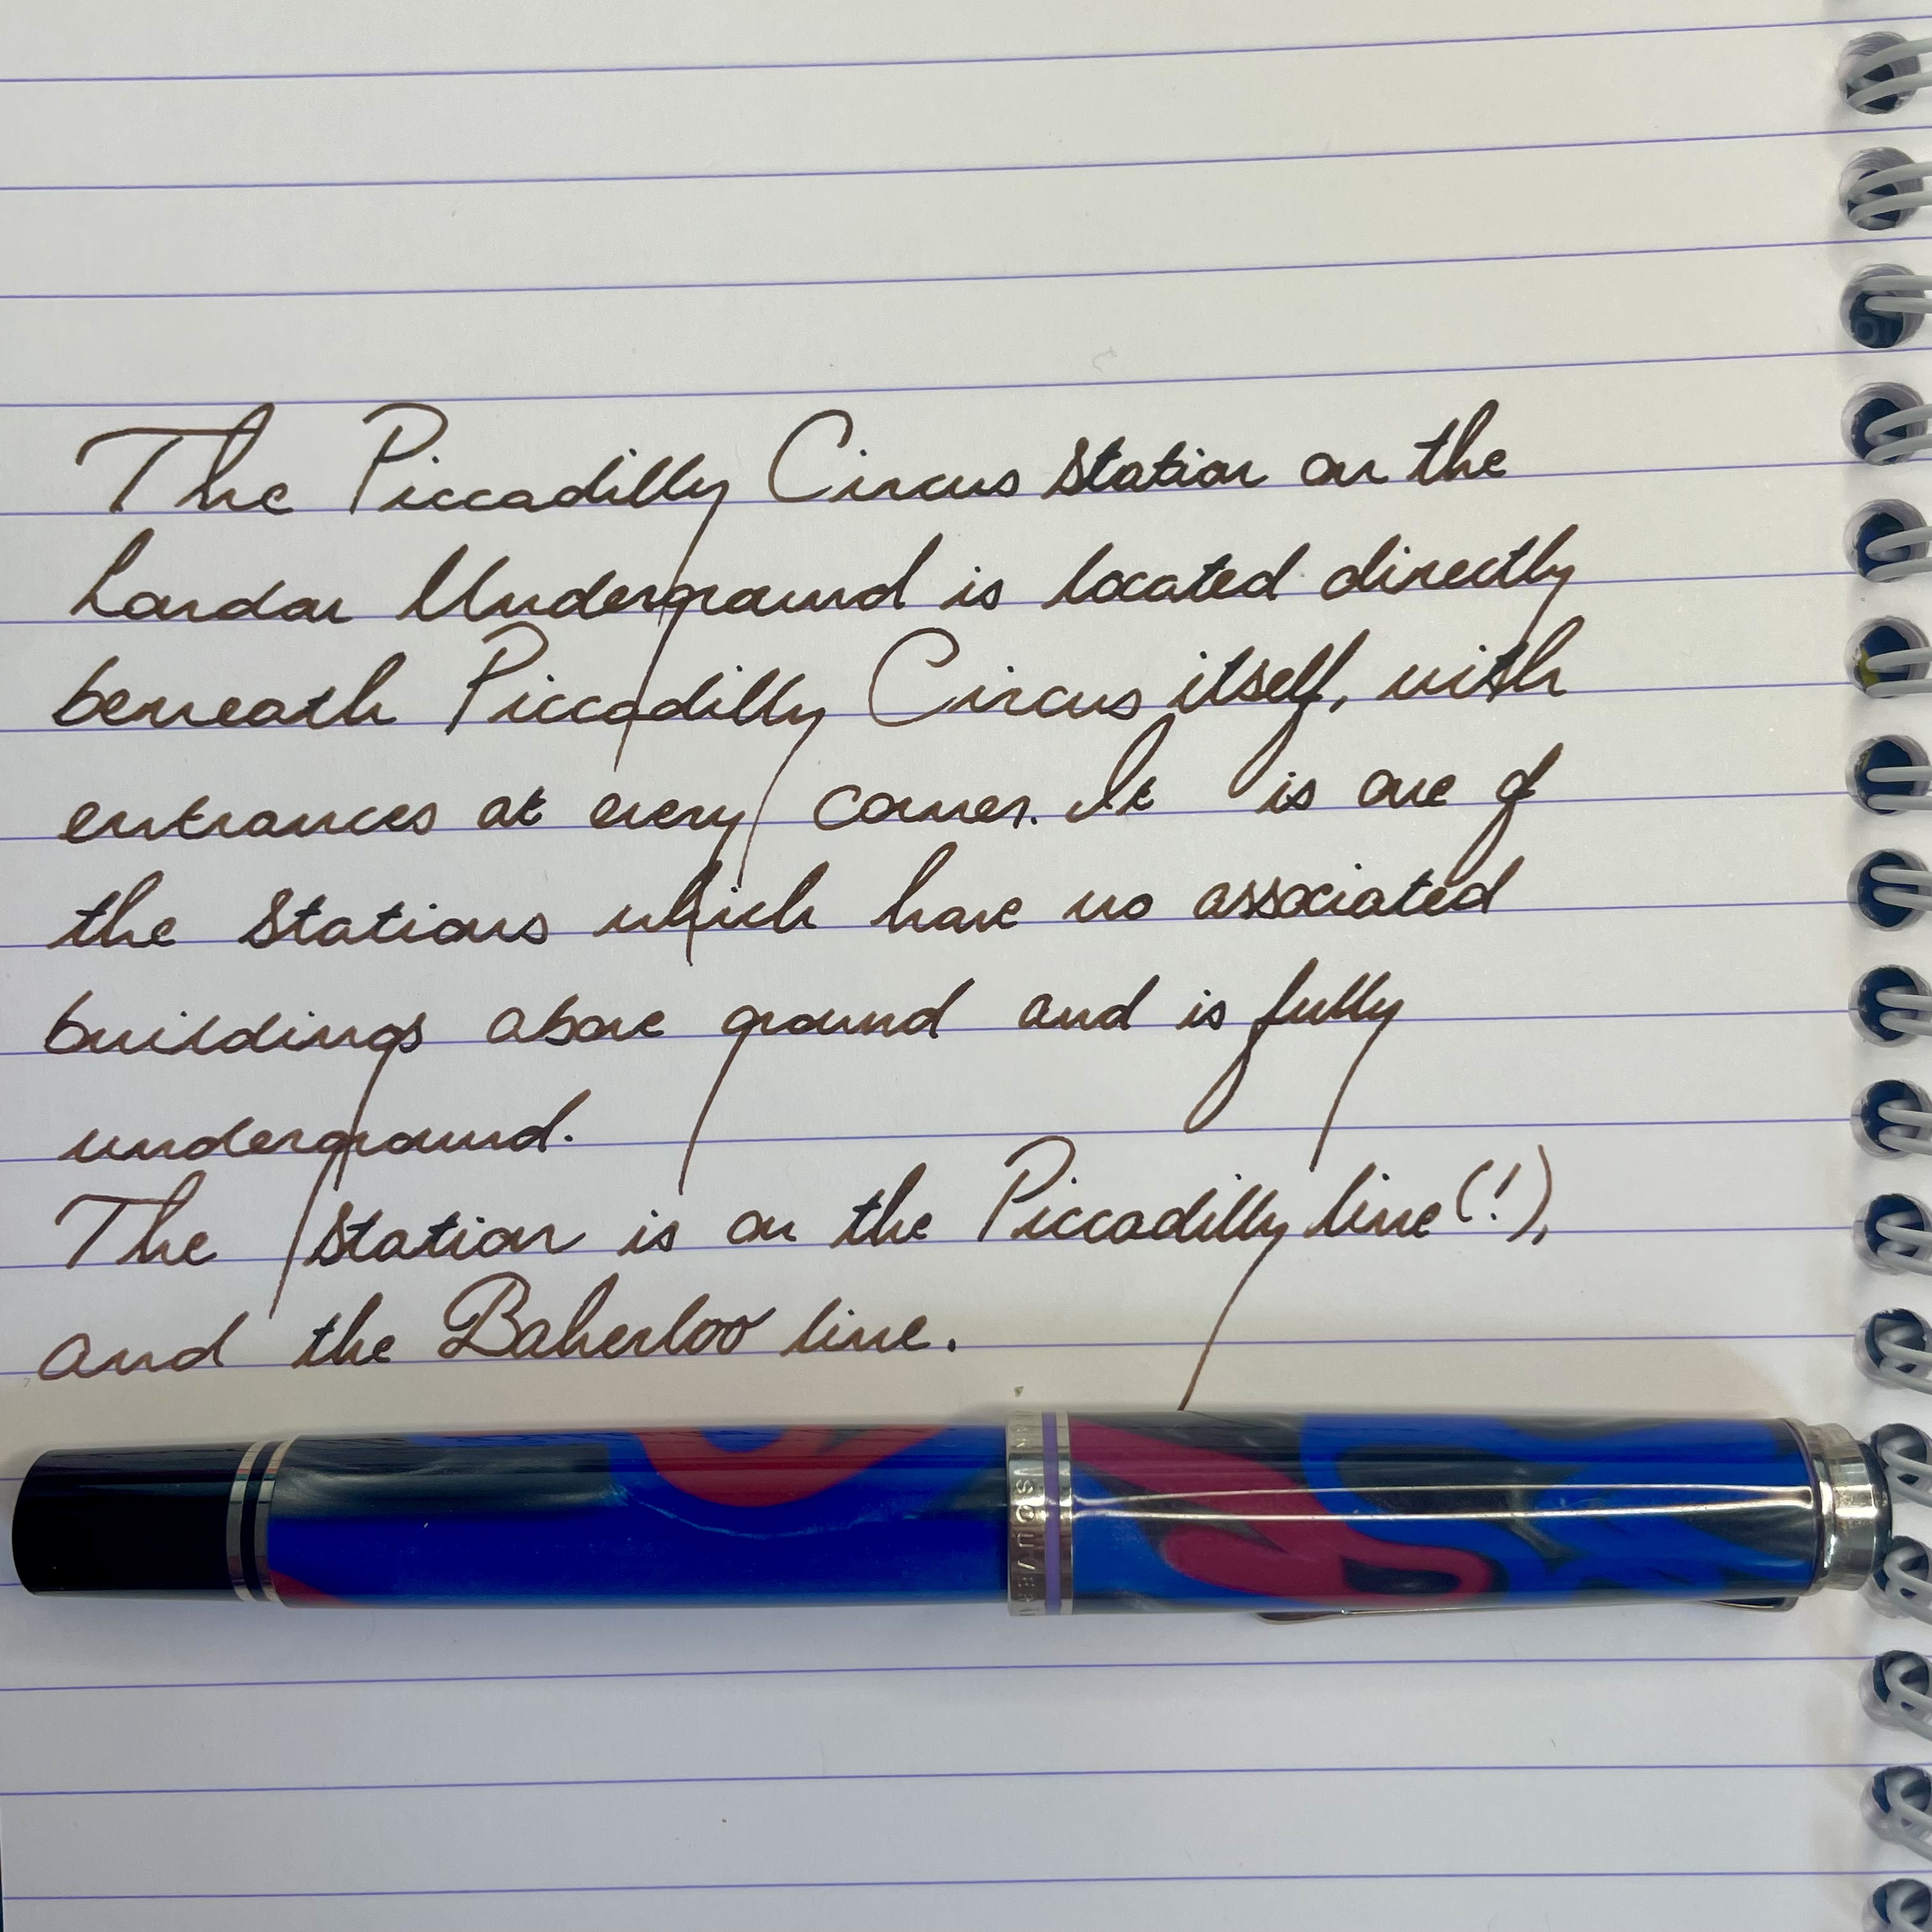 The Piccadilly Circus Station on the
London Underground is located directly
beneath Piccadilly Circus itself, with
entrances at every corner. It is one of
the Stations which have no associated
buildings above ground and is fully
underground.
The Station is on the Piccadilly line (!),
and the Bakerloo line.
SOUVERÄN